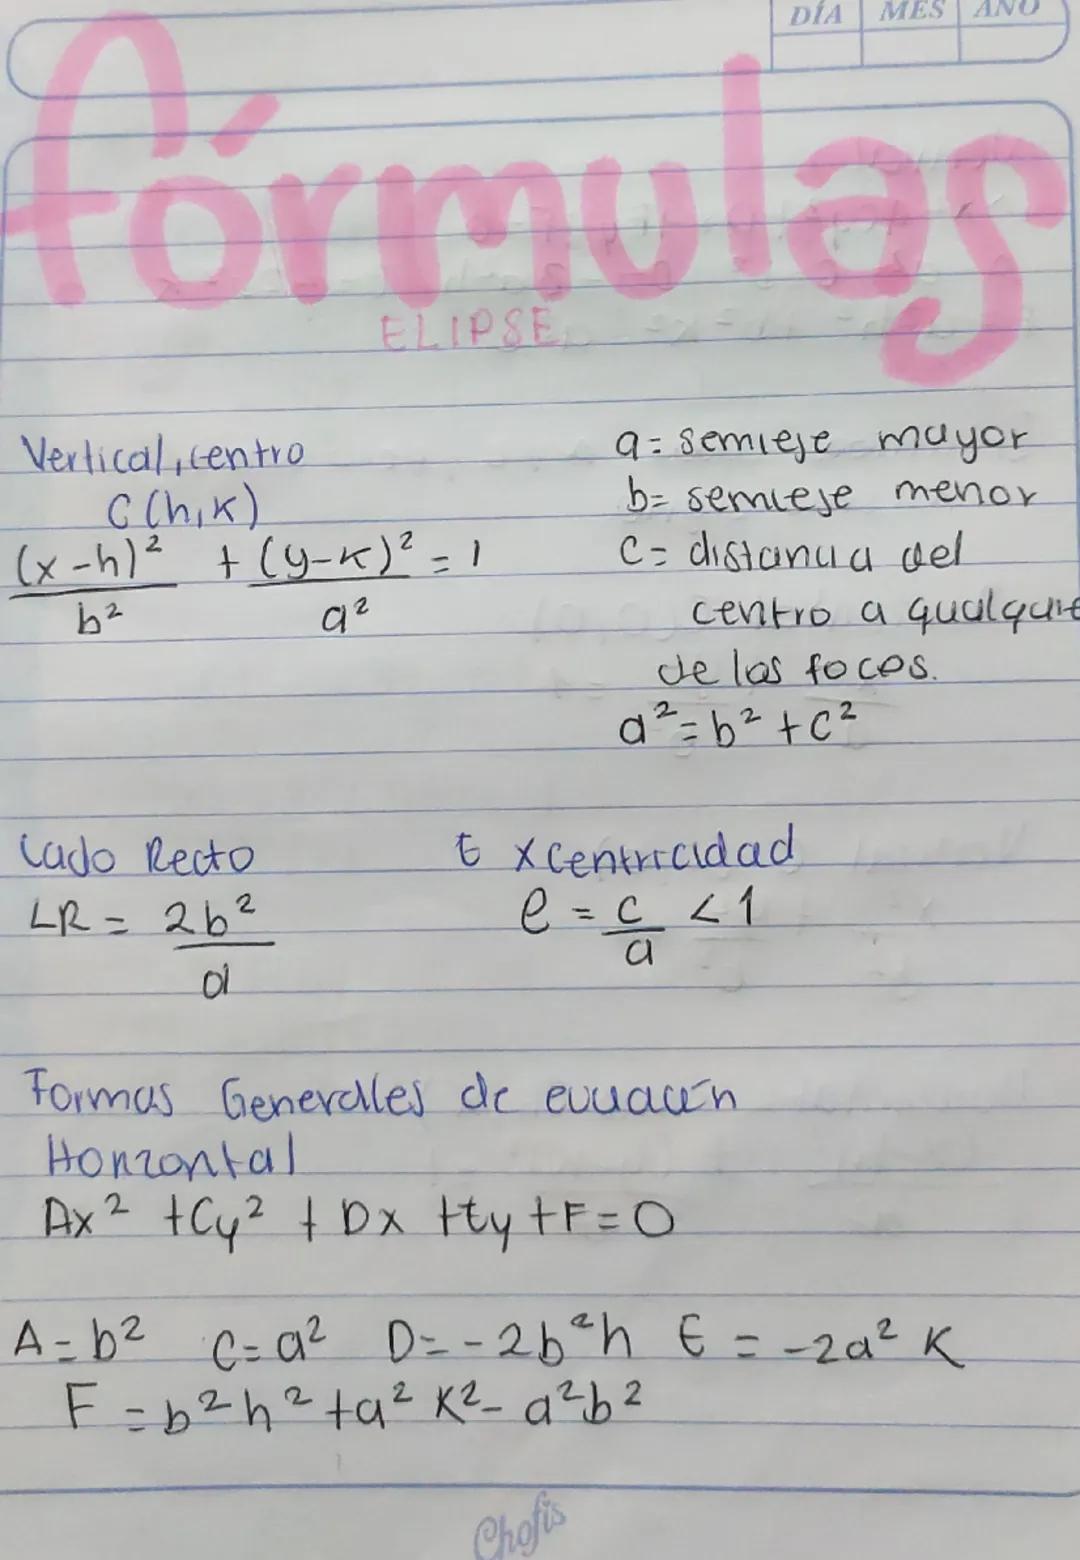 DÍA MES AÑO
fórmulas
ELIPSE
Vertical, centro
C(h,k)
(x-h)² + (y-k)² = 1
b² a²
a = semieje mayor
b = semieje menor
C = distancia del
centro a qualquie
de los focos.
a² = b² + c²
Lado Recto
LR = 2b²
a
Excentricidad
e = c < 1
a
Formas Generales de ecuación
Horizontal
Ax² + Cy² + Dx + Ey + F = 0
A = b² C = a² D = -2b²h E = -2a² K
F = b²h² + a² K² - a²b²
Chofis